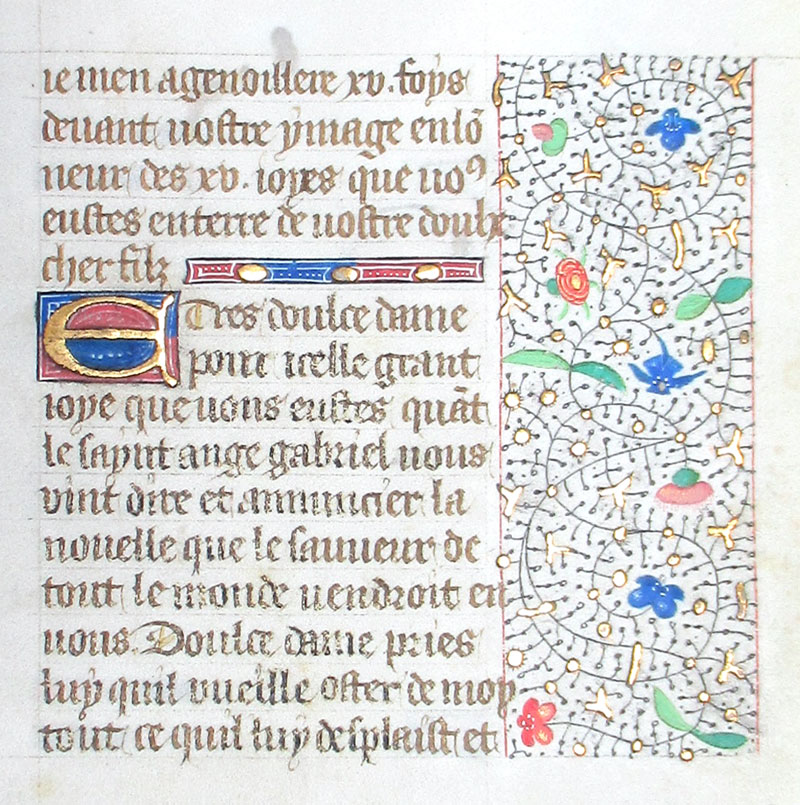 ie men agenoillere xv. foys
deuant uostre ymage en lō
neur des xv. ioyes que uoꝰ
eustes en terre de uostre doulx
cher filz
E Tres doulce dame
pour icelle grant
ioye que uous eustes quāt
le saynt ange gabriel uous
vint dire et annuncier la
nouelle que le sauueur de
tout le monde uendroit en
uous. Doulce dame pries
luy quil vueille oster de moy
tout ce quil luy desplaist et